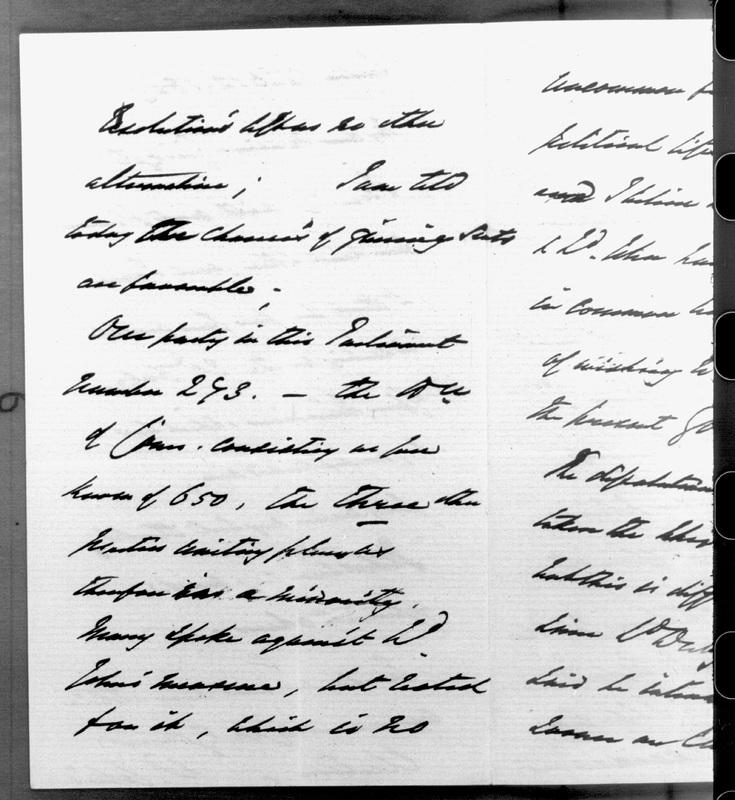 Resolutions leaves no other
alternative; I am told
today the chances of gaining Seats
are favorable;
Our party in this Parliament
Number 293. — the Hse
of Coms. consisting as you
know of 650, the three other
parties uniting places us
therefore in a minority.
Many spoke against Ld
John's measure, but voted
for it, which is no
uncommon
political life
and I believe
to Ld. John
in common
of wishing
the present
The dissolution
taken the
but this is diff
since Ld Derby
said he